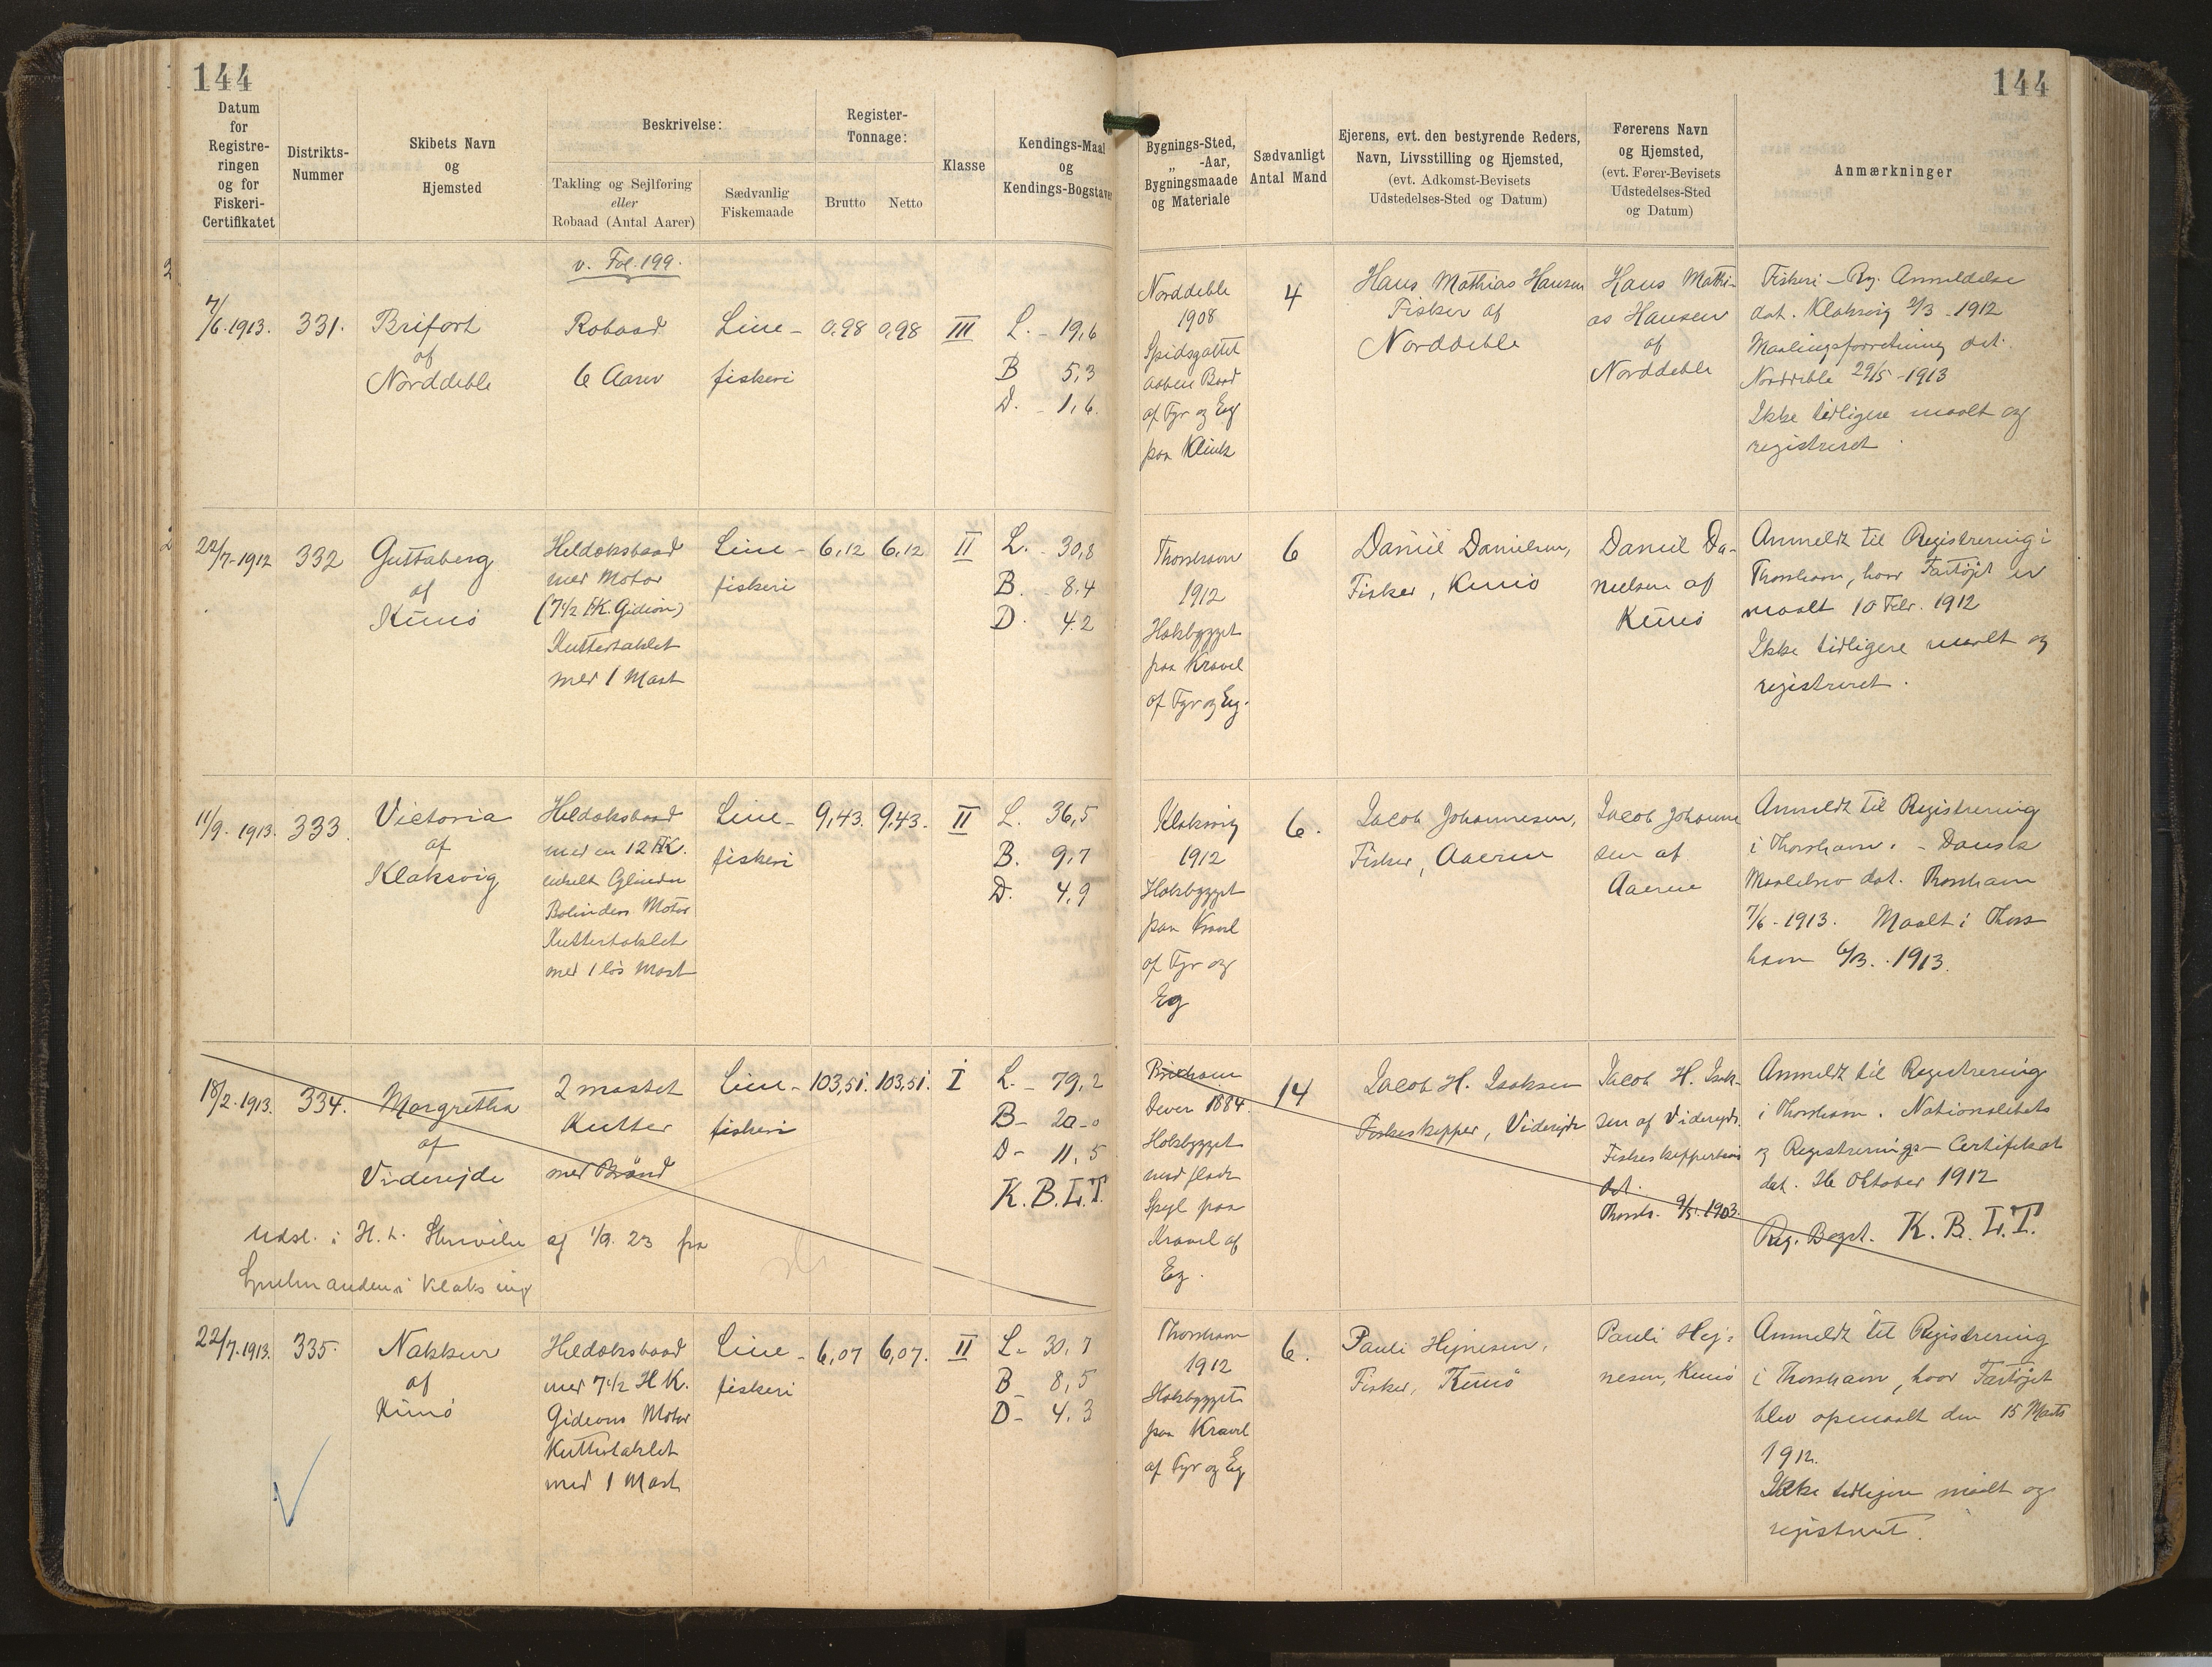 144
144
Datum
for
Registre-
ringen
og for
Fiskeri-
Certifikatet
Distrikts-
Nummer
Skibets Navn
og
Hjemsted
Beskrivelse:
Takling og Sejlføring
eller
Robaad (Antal Aarer)
Sædvanlig
Fiskemaade
Register-
Tonnage:
Brutto
Netto
Klasse
Kendings-Maal
og
Kendings-Bogstaver
Bygnings-Sted,
„ -Aar,
Bygningsmaade
og Materiale
Sædvanligt
Antal Mand
Ejerens, evt. den bestyrende Reders,
Navn, Livsstilling og Hjemsted,
(evt. Adkomst-Bevisets
Udstedelses-Sted og Datum)
Førerens Navn
og Hjemsted,
(evt. Fører-Bevisets
Udstedelses-Sted
og Datum)
Anmærkninger
v. Fol. 199.
7/6. 1913.
331.
Brifort
af
Norddeble
Robaad
6 Aarer
Line-
fiskeri
0,98
0,98
III
L. - 19,6
B 5,3
D. - 1,6.
Norddeble
1908
Spidsgattet
aaben Baad
af Fyr og Eg
paa Klink
4
Hans Mathias Hansen
Fisker af
Norddeble
Hans Mathi-
as Hansen
af
Norddeble
Fiskeri-Rg. Anmeldelse
dat. Klaksvig 2/3 - 1912
Maalingsforretning dat.
Norddeble 29/5 - 1913
Ikke tidligere maalt og
registreret
22/7-1912
332
Guttaberg
af
Kunø
Heldæksbaad
med Motor
(7 1/2 HK. Gideon)
Kuttertaklet
med 1 Mast
Line-
fiskeri
6,12
6,12
II
L. - 30,8
B. 8,4
D. 4.2
Thorshavn
1912
Hækbygget
paa Kravel
af Fyr og Eg.
6
Daniel Danielsen,
Fisker, Kunø
Daniel Da-
nielsen af
Kunø
Anmeldt til Registrering i
Thorshavn, hvor Fartøjet er
maalt 10 Febr. 1912
Ikke tidligere maalt og
registreret.
11/9. 1913.
333.
Victoria
af
Klaksvig
Heldæksbaad
med en 12 HK.
enkelt Cylinder
Bolinders Motor
Kuttertaklet
med 1 løs Mast
Line-
fiskeri
9,43.
9,43.
II
L. 36,5
B. 9,7
D. 4,9
Klaksvig
1912
Hækbygget
paa Kravel
af Fyr og
Eg
6.
Jacob Johannesen,
Fisker, Aaerne
Jacob Johanne
sen af
Aaerne
Anmeldt til Registrering
i Thorshavn. - Dansk
Maalebrev dat. Thorshavn
7/6-1913. Maalt i Thors
havn 6/3. 1913.
18/2. 1913.
334.
Margretha
af
Viderejde
2 mastet
Kutter
med Brønd
Line-
fiskeri
103,51.
103,51.
I
L. - 79,2
B- 20-0
D- 11,5
K. B. L. T.
Brixham
Dever 1884.
Hækbygget
med fladt
Spejl paa
Kravel af
Eg.
14
Jacob H. Isaksen
Fiskeskipper, Viderejde
Jacob H. Isak-
sen af Viderejde.
Fiskeskipperbevis
dat.
Thorsh. 9/5. 1903.
Anmeldt til Registrering
i Thorshavn. Nationalitets
og Registrerings-Certifikat
dat. 26 Oktober 1912
Reg. Bogst. K. B. L. T.
Udsl. i H. t. Skrivelse af 1/9. 23 fra
i Klaksvig
22/7. 1913.
335.
Nakkur
af
Kunø
Heldæksbaad
med 7 1/2 HK.
Gideons Motor
Kuttertaklet
med 1 Mast
Line-
fiskeri
6,07
6,07.
II
L- 30,7
B- 8,5
D- 4,3
Thorshavn
1912
Hækbygget
paa Kravel
af Fyr og Eg
6.
Pauli Hejnesen,
Fisker, Kunø
Pauli Hej-
nesen, Kunø
Anmeldt til Registrering
i Thorshavn, hvor Fartøjet
blev opmaalt den 15 Marts
1912.
Ikke tidligere maalt og
registreret.